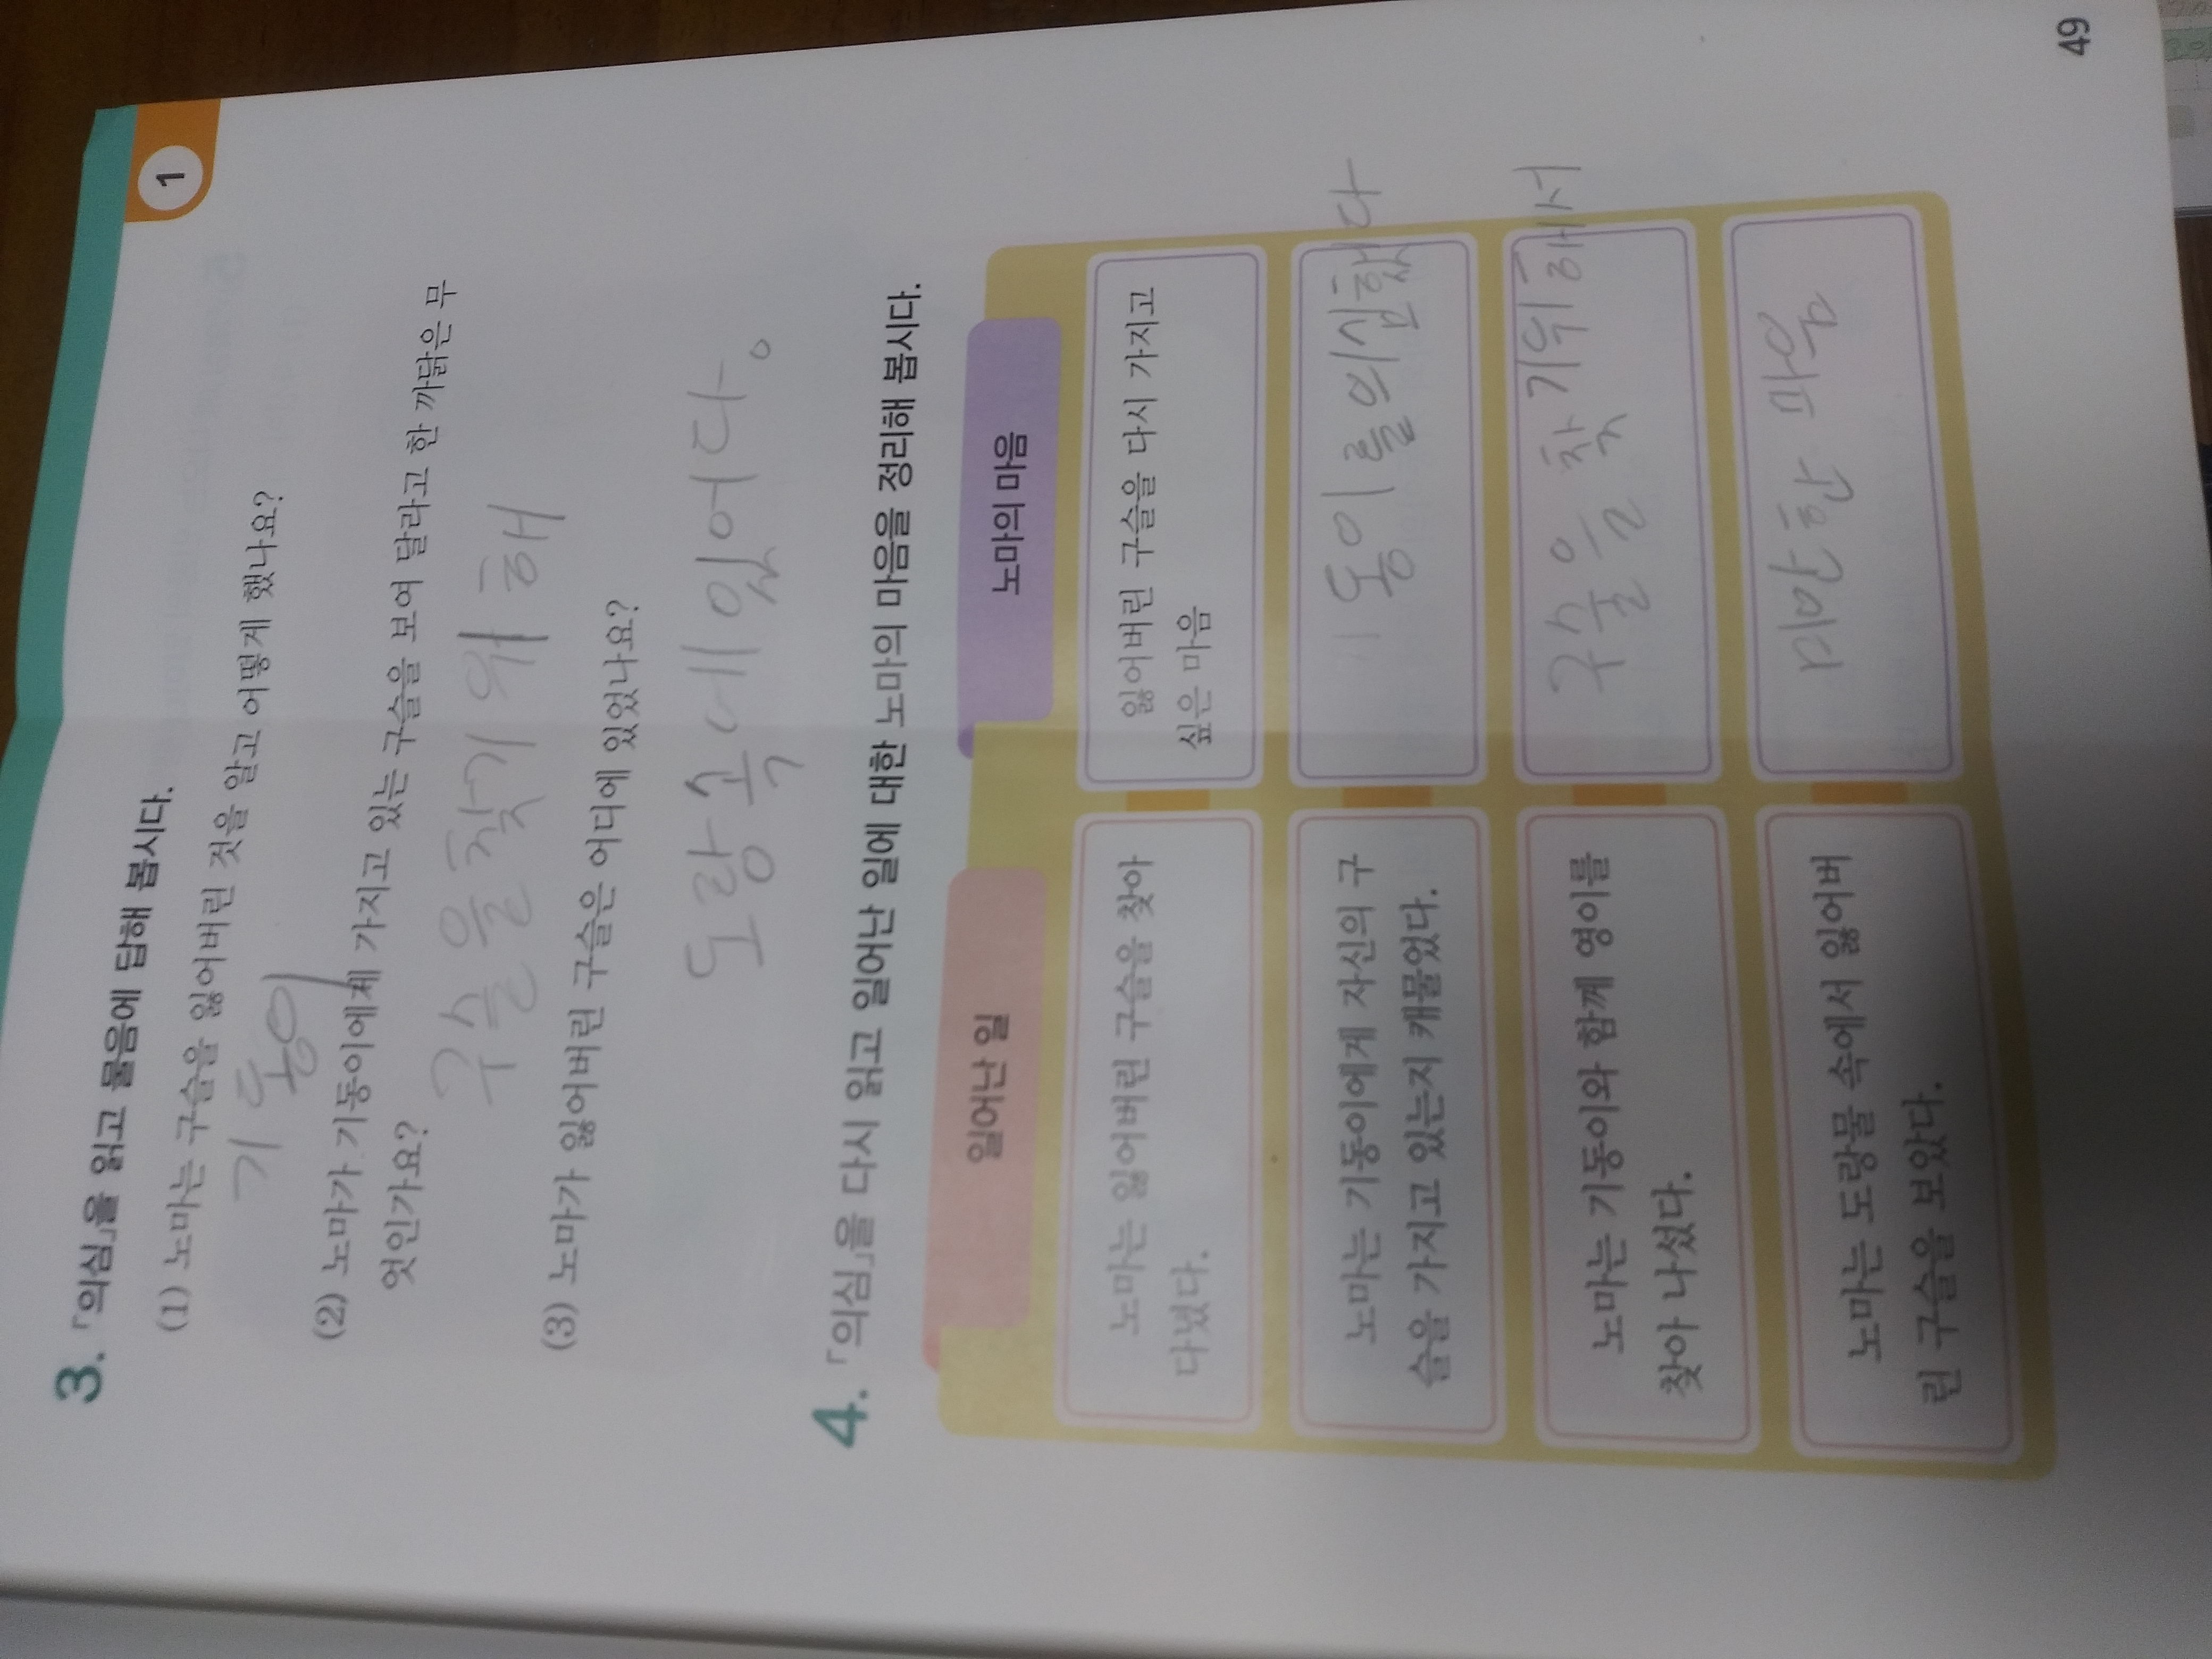 1
3. 「의심」을 읽고 물음에 답해 봅시다.
(1) 노마는 구슬을 잃어버린 것을 알고 어떻게 했나요?
기동이
(2) 노마가 기동이에게 가지고 있는 구슬을 보여 달라고 한 까닭은 무
엇인가요?
구슬을찾기 위해
(3) 노마가 잃어버린 구슬은 어디에 있었나요?
도랑 속에있어다.
4. 「의심」을 다시 읽고 일어난 일에 대한 노마의 마음을 정리해 봅시다.
일어난 일
노마의 마음
노마는 잃어버린 구슬을 찾아
다녔다.
잃어버린 구슬을 다시 가지고
싶은 마음
노마는 기동이에게 자신의 구
슬을 가지고 있는지 캐물었다.
동이를의심했다
노마는 기동이와 함께 영이를
찾아 나섰다.
구슬을 찾기위해서
노마는 도랑물 속에서 잃어버
린 구슬을 보았다.
미안한 마음
49